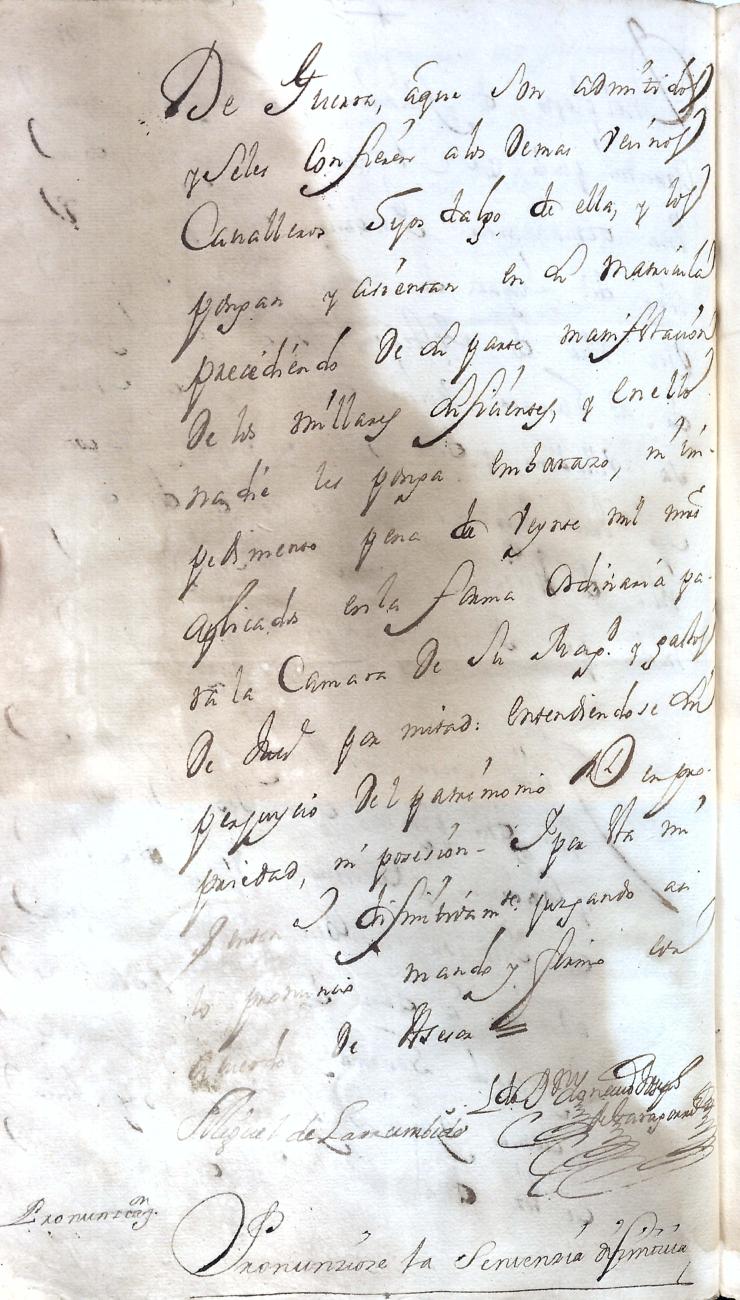 De Guerra, âque son admitidos
y seles Confieren alos Demas Vecinos
Cavalleros Hijos dalgo de ella, y los
pongan y asientan en la Matricula
precediendo De la parte manifestación
De los millares suficientes, y en ello
nadie les ponga embarazo, ni im-
pedimento pena de veynte mil mrs
aplicados en la forma Ordinaria pa-
ra la Camara De Su Magd. y gastos
De Justª por mitad: entendiendose sin
perjuycio Del patrimonio Rl en pro-
priedad, ni posesión- Y por esta mi
Senten difinitivamte. juzgando asi
lo pronuncio mando y firmo con
acuerdo De Asesor =
Ldo Dn Joseph
Miguel de Larumbide
Pronunciaon.
Pronunziose la Sentenzia difinitiva